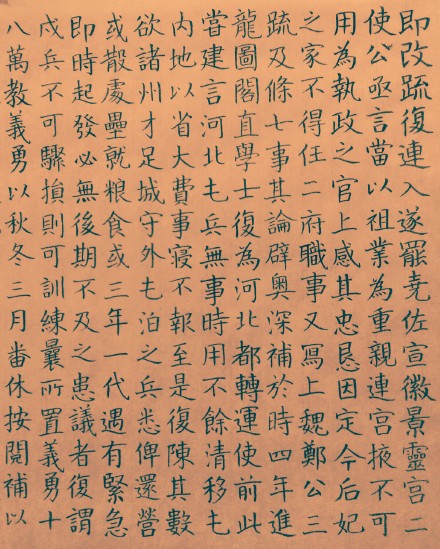 即改疏復連入遂罷堯佐宣徽景靈宮二
使公亟言當以祖業為重親連宮掖不可
用為執政之官上感其忠懇因定今后妃
之家不得任二府職事又寫上魏鄭公三
疏及條七事其論辟奧深補於時四年進
龍圖閣直學士復為河北都轉運使前此
嘗建言河北屯兵無事時用不餘清移屯
內地以省大費事寢不報至是復陳其數
欲諸州才足城守外屯泊之兵悉俾還營
或散處壘就粮食或三年一代遇有緊急
即時起發必無後期不及之患議者復謂
戍兵不可驟損則可訓練曩所置義勇十
八萬教義勇以秋冬三月番休按閱補以